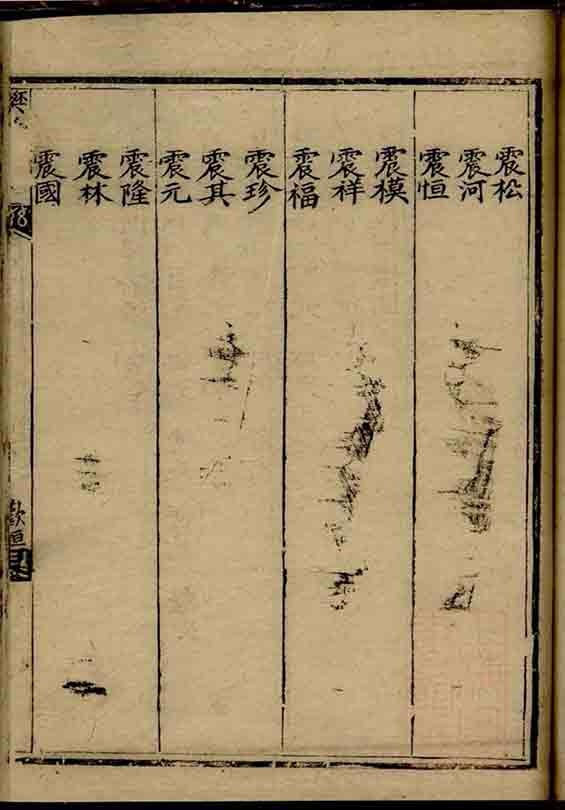 震松
震河
震恒
震模
震祥
震福
震珍
震其
震元
震隆
震林
震國